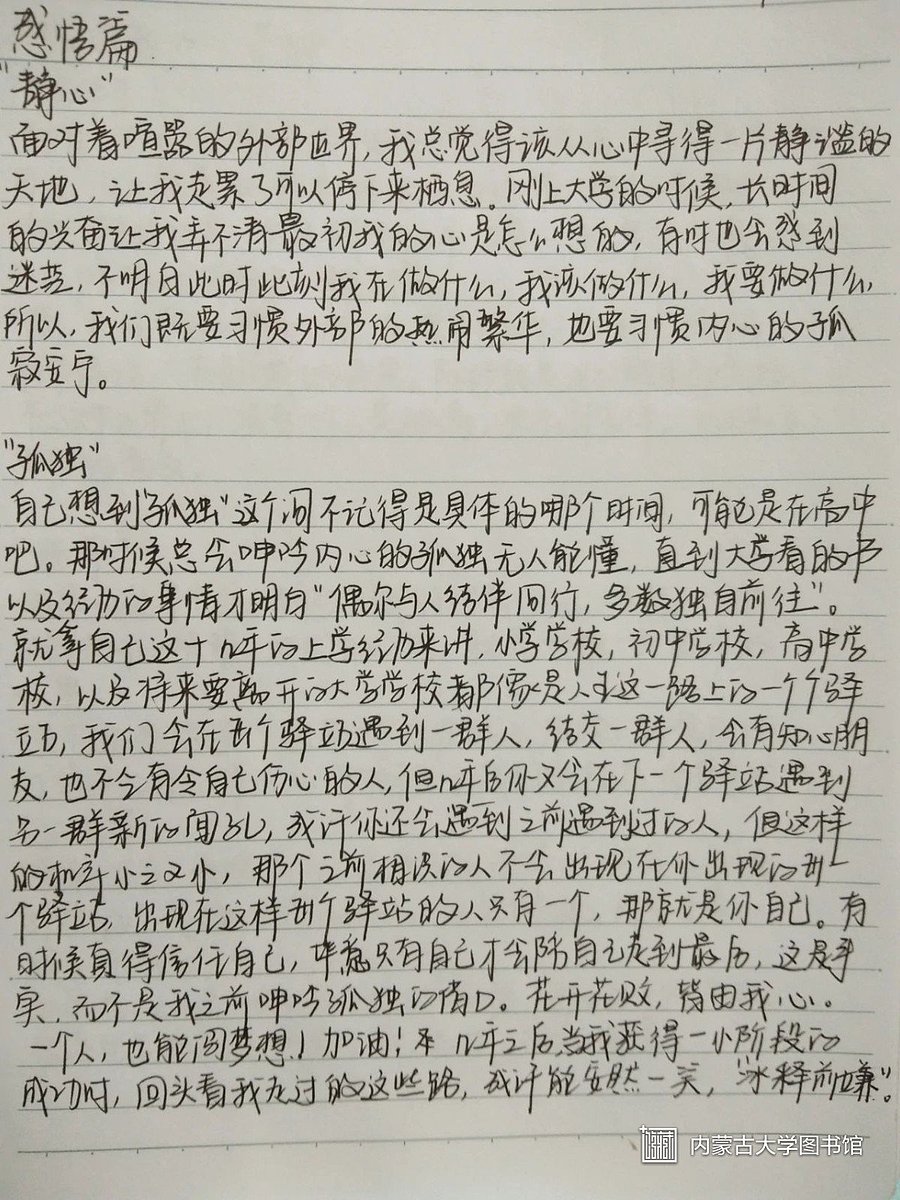 感悟篇
"静心"
面对着喧嚣的外部世界,我总觉得该从心中寻得一片静谧的
天地,让我走累了可以停下来栖息。刚上大学的时候,长时间
的兴奋让我弄不清最初我的心是怎么想的,有时也会感到
迷茫,不明白此时此刻我在做什么,我该做什么,我要做什么,
所以,我们既要习惯外部的热闹繁华,也要习惯内心的孤
寂安宁。
"孤独"
自己想到"孤独"这个词不记得是具体的哪个时间,可能是在高中
吧。那时候总会呻吟内心的孤独无人能懂,直到大学看的书
以及经历的事情才明白"偶尔与人结伴同行,多数独自前往"。
就拿自己这十几年的上学经历来讲,小学学校,初中学校,高中学
校,以及将来要离开的大学学校都像是人生这一路上的一个个驿
站,我们会在每个驿站遇到一群人,结交一群人,会有知心朋
友,也不会有令自己伤心的人,但几年后你又会在下一个驿站遇到
另一群新的面孔,或许你还会遇到之前遇到过的人,但这样
的机率小之又小,那个之前相识的人不会出现在你出现的每一
个驿站,出现在这样每个驿站的人只有一个,那就是你自己。有
时候真得信任自己,毕竟只有自己才会陪自己走到最后,这是事
实,而不是我之前呻吟孤独的借口。花开花败,皆由我心。
一个人,也能闯梦想!加油!几年之后当我获得一小阶段的
成功时,回头看我走过的这些路,或许能安然一笑,"冰释前嫌"。
内蒙古大学图书馆